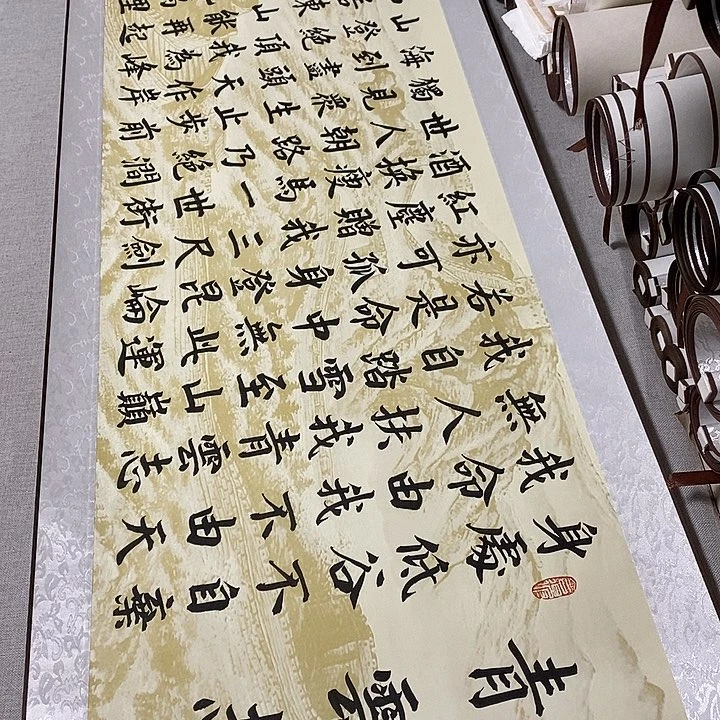 青雲志
身處低谷不自棄
我命由我不由天
無人扶我青雲志
我自踏雪至山巔
若是命中無此運
亦可孤身登昆崙
紅塵贈我三尺劍
酒換瘦馬一世術
世人朝路乃絕澗
獨見衆生止步前
海到盡頭天作岸
山登絕頂我為峰
東山再起
里